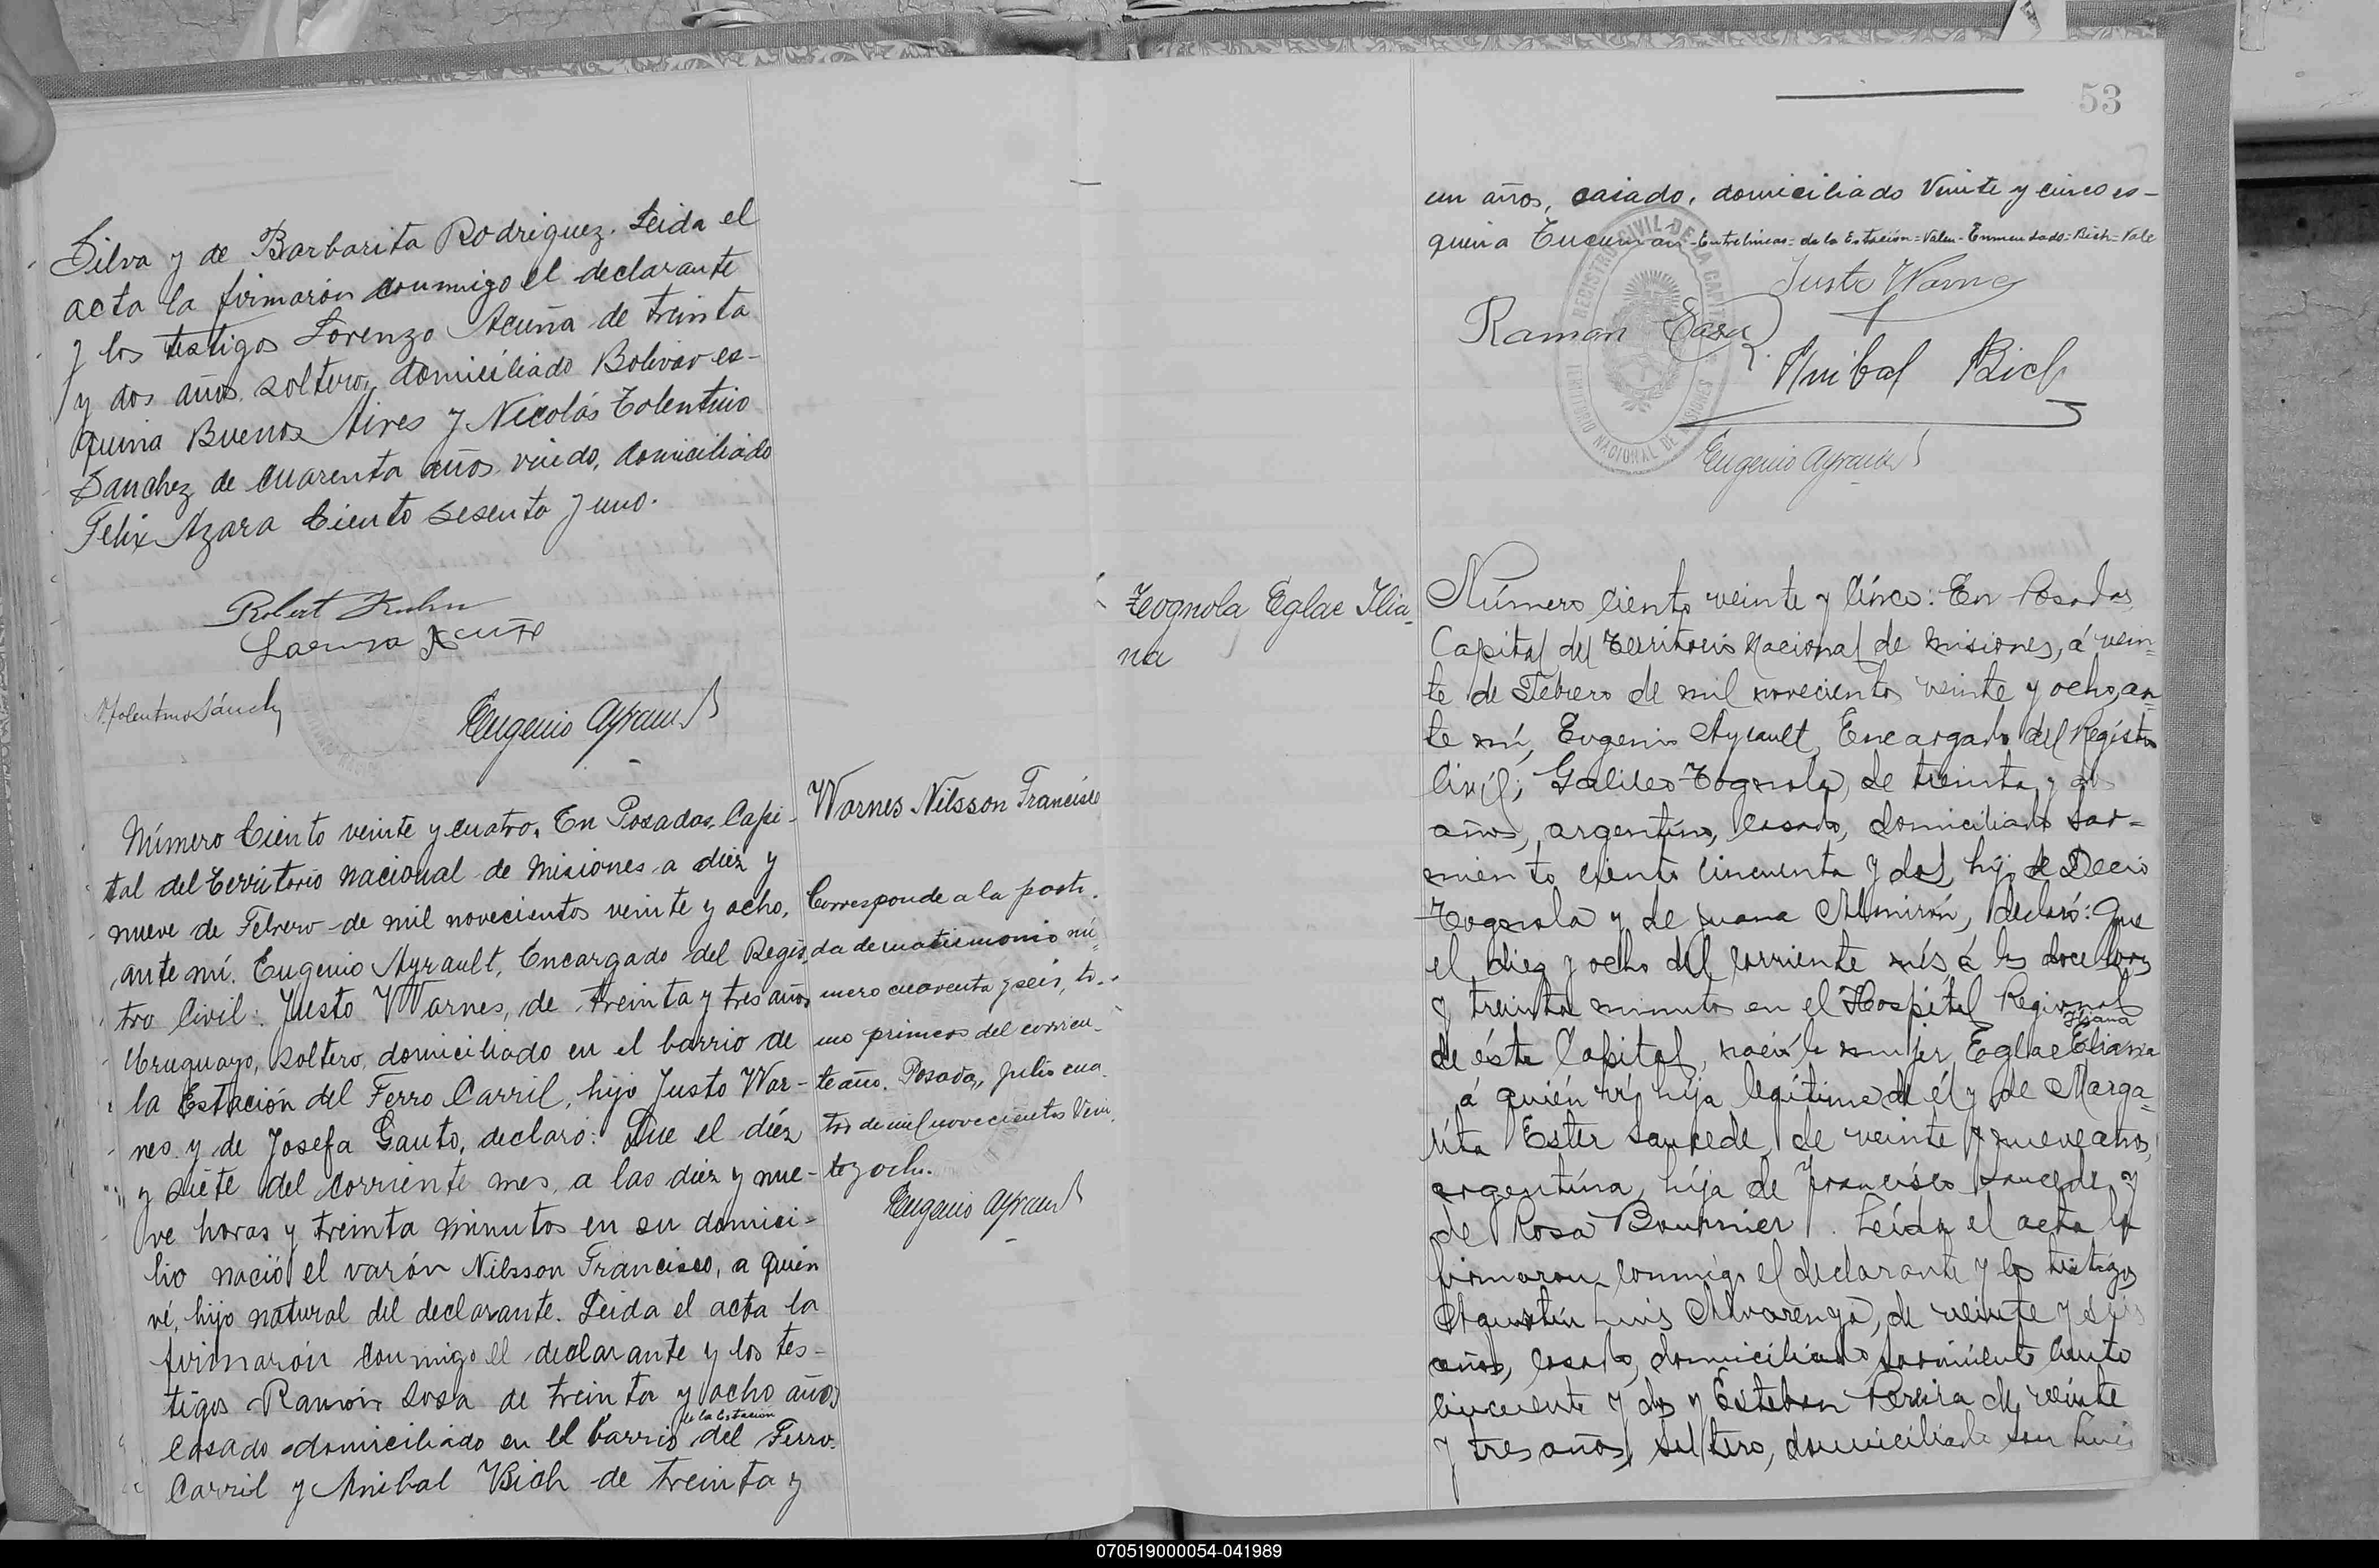 Silva y de Barbarita Rodriguez. Leida el
acta la firmaron conmigo el declarante
y los testigos Lorenzo Acuña de treinta
y dos años soltero, domiciliado Bolivar es-
quina Buenos Aires y Nicolás Tolentino
Sanchez de cuarenta años viudo, domiciliado
Felix Azara Ciento sesenta y uno.
Robert Kuhn
Lorenzo Acuña
N. Tolentino Sánchez
Eugenio Ayrault
Número Ciento veinte y cuatro. En Posadas, Capi-
tal del Territorio nacional de Misiones a diez y
nueve de Febrero de mil novecientos veinte y ocho,
ante mí. Eugenio Ayrault, Encargado del Regis-
tro Civil: Justo Warnes, de treinta y tres años
Uruguayo, soltero, domiciliado en el barrio de
la Estación del Ferro Carril, hijo Justo War-
nes y de Josefa Gauto, declaró: Que el diéz
y siete del corriente mes, a las diez y nue-
ve horas y treinta minutos en su domici-
lio nació el varón Nilsson Francisco, a quien
ví, hijo natural del declarante. Leida el acta la
firmarón conmigo el declarante y los tes-
tigos Ramón Sosa de treinta y ocho años
de la Estación
casado domiciliado en el barrio del Ferro-
Carril y Anibal Bich de treinta y
Warnes Nilsson Francisco
Corresponde a la parti-
da de matrimonio nú-
mero cuarenta y seis, to-
mo primero del corrien-
te año. Posadas, Julio cua-
tro de mil novecientos vein-
te y ocho.
Eugenio Ayrault
53
un años, casado, domiciliado Veinte y cinco es-
quina Tucuman - Entrelineas - de la Estación = Valen - Enmendado = Bich = Vale
Justo Warnes
Ramon Sosa
Anibal Bich
Eugenio Ayrault
REGISTRO CIVIL DE LA CAPITAL
TERRITORIO NACIONAL DE MISIONES
Tognola Eglae Ilia-
na
Número ciento veinte y cinco: En Posadas
Capital del Territorio Nacional de Misiones, á vein-
te de Febrero de mil novecientos veinte y ocho, an-
te mí, Eugenio Ayrault, Encargado del Registro
Civil; Galileo Tognola, de treinta y dos
años, argentino, casado, domiciliado Sar-
miento ciento cincuenta y dos, hijo de Decio
Tognola y de Juana Almirón, declaró: Que
el diez y ocho del corriente més á las doce horas
y treinta minutos en el Hospital Regional
Iliana
de ésta Capital, nació la mujer Eglae Eliana
á quién ví, hija legítima de él y de Marga-
rita Ester Saucede, de veinte y nueve años,
argentina, hija de Francisco Saucede y
de Rosa Bournier. Leída el acta la
firmaron conmigo el declarante y los testigos
Agustín Luis Alvarenga, de veinte y seis
años, casado, domiciliado Sarmiento ciento
cincuenta y dos y Esteban Pereira de veinte
y tres años, soltero, domiciliado San Luis
070519000054-041989